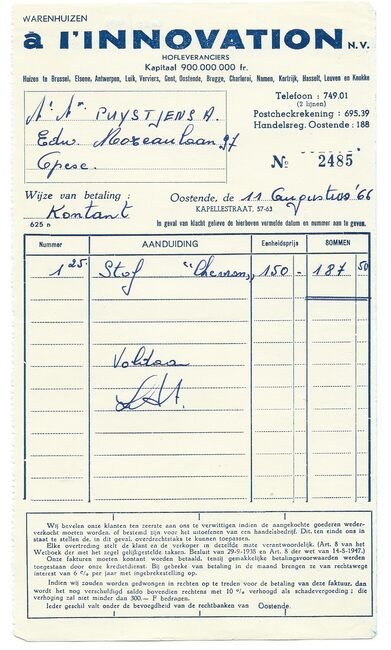 WARENHUIZEN
à l'INNOVATION N.V.
HOFLEVERANCIERS
Kapitaal 900.000.000 fr.
Huizen te Brussel, Elsene, Antwerpen, Luik, Verviers, Gent, Oostende, Brugge, Charleroi, Namen, Kortrijk, Hasselt, Leuven en Knokke
Telefoon : 749.01
(2 lijnen)
Postcheckrekening : 695.39
Handelsreg. Oostende : 188
PUYSTJENS A.
Edw. Moreaulaan 97
No 2485
Wijze van betaling :
Kontant
Oostende, de 11 Augustus '66
KAPELLESTRAAT, 57-63
625 n
In geval van klacht gelieve de hierboven vermelde datum en nummer aan te geven.
Nummer AANDUIDING Eenheidsprijs SOMMEN
1 25 Stof 150 - 187 50
Voldaan
Wij bevelen onze klanten ten zeerste aan ons te verwittigen indien de aangekochte goederen weder-
verkocht moeten worden, of bestemd zijn voor het uitoefenen van een handelsbedrijf. Dit, ten einde ons in
staat te stellen de, in dit geval, overdrachtstaks te kunnen toepassen.
Elke overtreding stelt de klant en de verkoper in dezelfde mate verantwoordelijk. (Art. 8 van het
Wetboek der met het zegel gelijkgestelde taksen. Besluit van 29-9-1938 en Art. 8 der wet van 14-8-1947.)
Onze facturen moeten kontant worden betaald, tenzij gemakkelijke betalingsvoorwaarden werden
toegestaan door onze kredietdienst. Bij gebreke van betaling in de maand brengen ze van rechtswege
interest van 6 % per jaar met ingebrekestelling op.
Indien wij zouden worden gedwongen in rechten op te treden voor de betaling van deze faktuur, dan
wordt het nog verschuldigd saldo bovendien rechtens met 10 % verhoogd als schadevergoeding ; die
verhoging zal niet minder dan 300.— F bedragen.
Ieder geschil valt onder de bevoegdheid van de rechtbanken van Oostende.